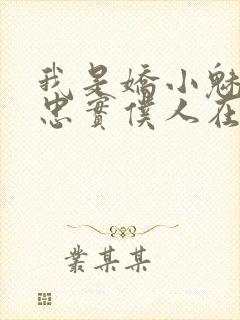 我是嬌小魅
忠實僕人在
叢某某